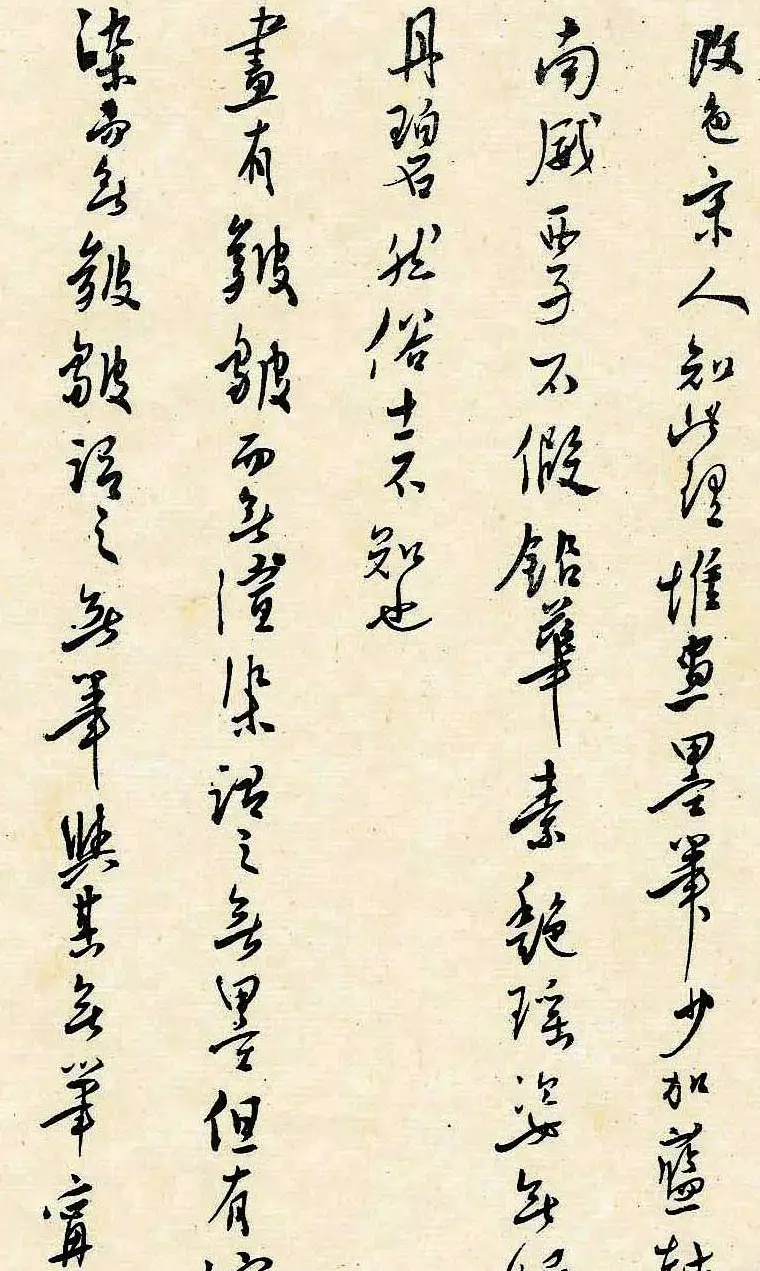 改色宋人知此理惟画墨筆少加藍
南威西子不假鉛華素艷瑶姿無
丹碧然俗士不知也
畫有皴皴而無渲染謂之無墨但有
染而無皴皴謂之無筆與其無筆寧